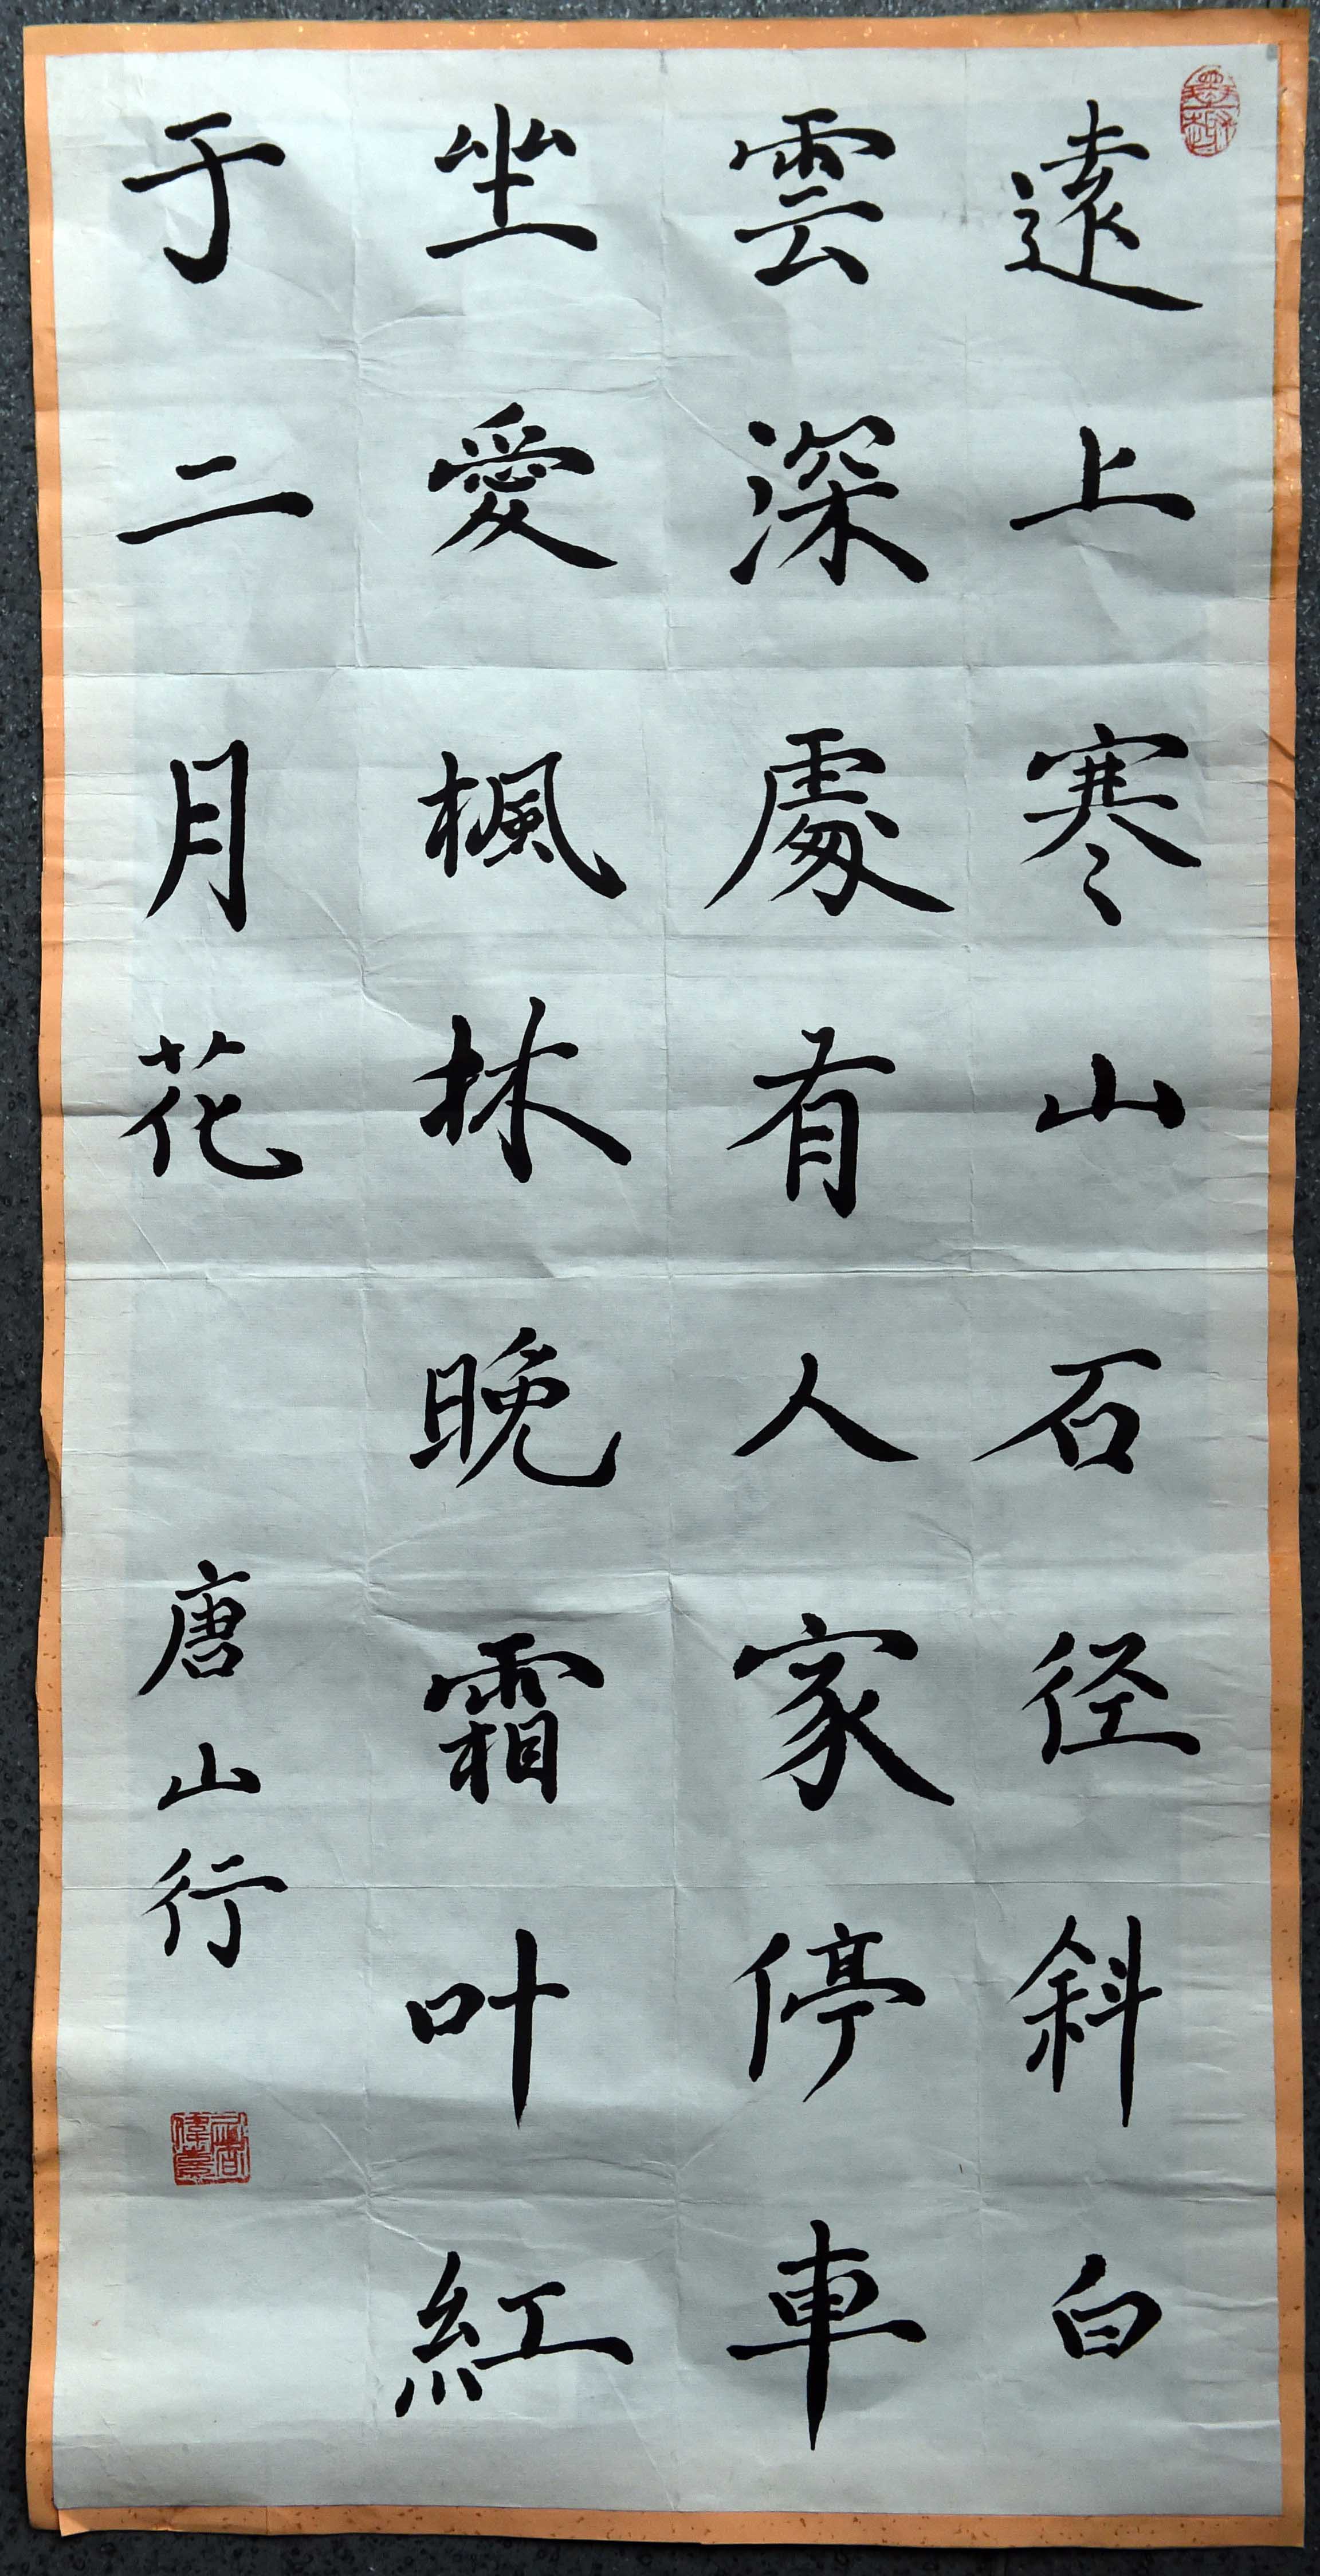 遠上寒山石径斜白
雲深處有人家停車
坐愛楓林晚霜叶紅
于二月花
唐山行